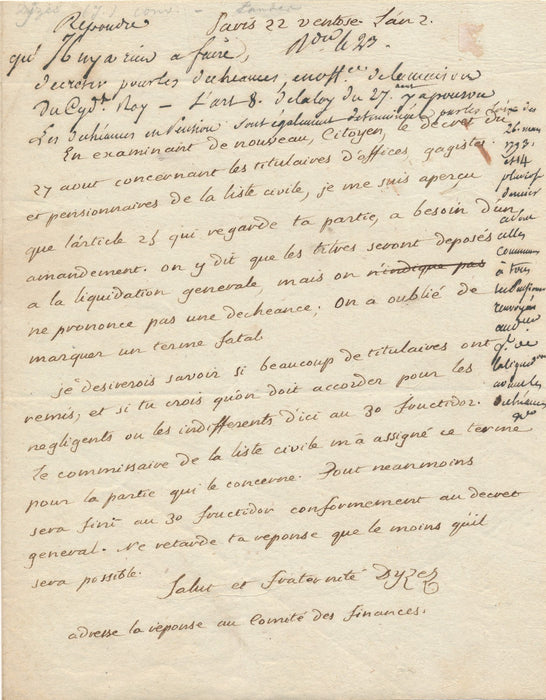 Dyzès conv.
Repondre
Paris 22 ventose. L'an 2.
qu'il n'y a rien a faire,
Rdu le 23.
decreter pour les decheances en off.ce de la maison
Du Cyd.t Roy — L'art 8. de la loy du 27.
Les decheances en Pension sont egalement determinées par les Loix des
26. mars
1793.
et 14
pluviose
dernier
communes
à tous
les Pensions
renvoyés
aud.
de
la liquid.on
decheances
En examinant de nouveau, Citoyen, le decret du
27 aout concernant les titulaires d'offices, gagistes
et pensionnaires de la liste civile, je me suis aperçu
que l'article 25 qui regarde ta partie, a besoin d'un
amandement. on y dit que les titres seront deposés
a la liquidation generale, mais on n'indique pas
ne prononce pas une decheance; On a oublié de
marquer un terme fatal.
je desirerois savoir si beaucoup de titulaires ont
remis, et si tu crois qu'on doit accorder pour les
negligents ou les indifferents d'ici au 30 fructidor.
Le commissaire de la liste civile m'a assigné ce terme
pour la partie qui le concerne. Tout neanmoins
sera fini au 30 fructidor conformement au decret
general. Ne retarde ta reponse que le moins qu'il
sera possible.
Salut et fraternité Dyzez
adresse la reponse au Comité des finances.